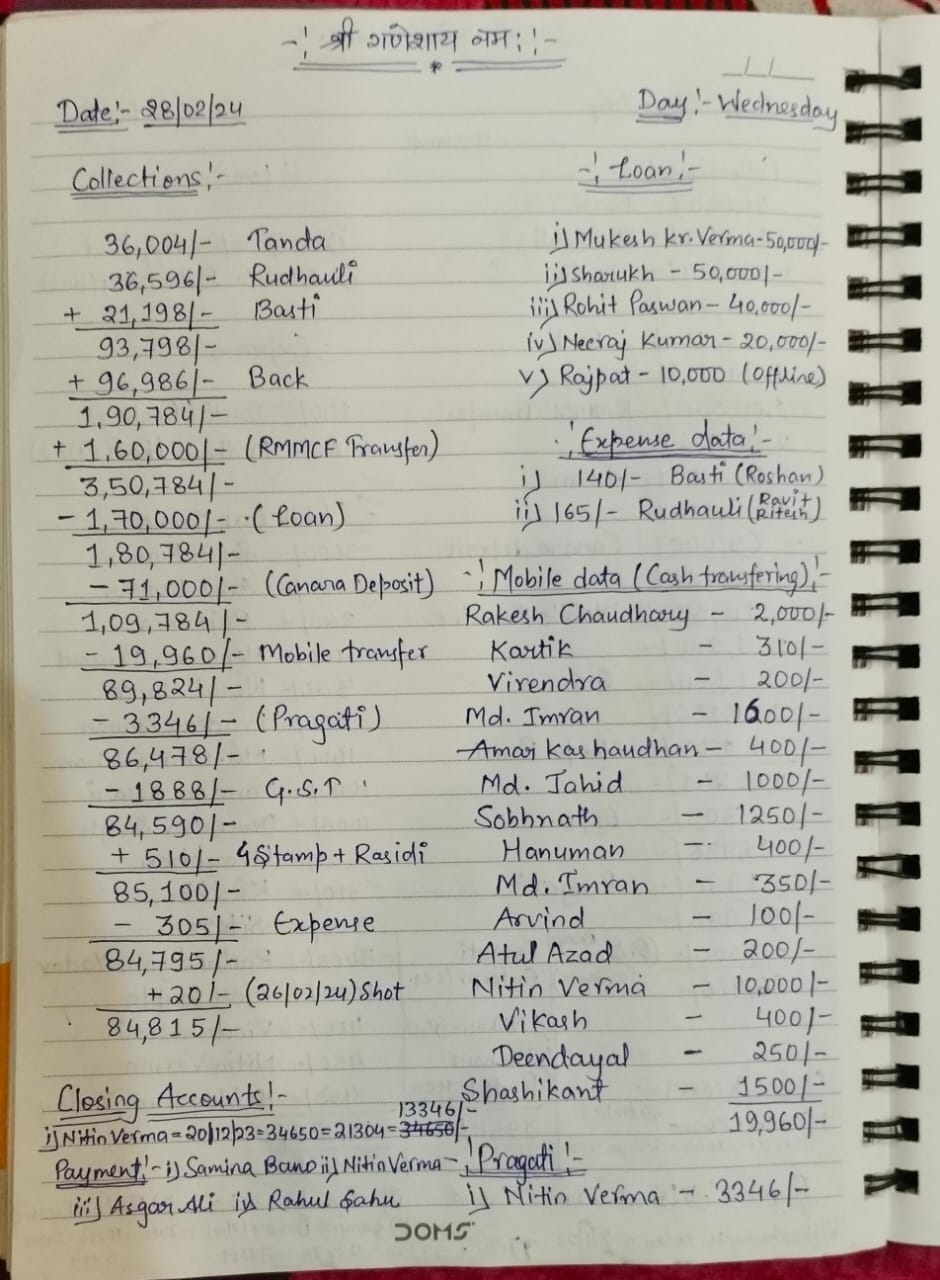 -! श्री गणेशाय नम: !-
*
Date:- 28/02/24
Day:- Wednesday
Collections:-
36,004/- Tanda
36,596/- Rudhauli
+ 21,198/- Basti
93,798/-
+ 96,986/- Back
1,90,784/-
+ 1,60,000/- (RMMCF Transfer)
3,50,784/-
- 1,70,000/- (Loan)
1,80,784/-
- 71,000/- (Canara Deposit)
1,09,784/-
- 19,960/- Mobile transfer
89,824/-
- 3346/- (Pragati)
86,478/-
- 1888/- G.S.T
84,590/-
+ 510/- 4 Stamp + Rasidi
85,100/-
- 305/- Expense
84,795/-
+ 20/- (26/02/24) Shot
84,815/-
-! Loan !-
i) Mukesh kr. Verma - 50,000/-
ii) Sharukh - 50,000/-
iii) Rohit Paswan - 40,000/-
iv) Neeraj Kumar - 20,000/-
v) Rajpat - 10,000 (Offline)
! Expense data !-
i) 140/- Basti (Roshan)
ii) 165/- Rudhauli (Ravi + Ritesh)
-! Mobile data (Cash transfering) !-
Rakesh Chaudhary - 2,000/-
Kartik - 310/-
Virendra - 200/-
Md. Imran - 1600/-
Amar Kashaudhan - 400/-
Md. Jahid - 1000/-
Sobhnath - 1250/-
Hanuman - 400/-
Md. Imran - 350/-
Arvind - 100/-
Atul Azad - 200/-
Nitin Verma - 10,000/-
Vikash - 400/-
Deendayal - 250/-
Shashikant - 1500/-
19,960/-
Closing Accounts:-
13346/-
i) Nitin Verma = 20/12/23 = 34650 = 21304 = 34650/-
Payment:- i) Samina Bano ii) Nitin Verma
iii) Asgar Ali iv) Rahul Sahu
-! Pragati !-
i) Nitin Verma - 3346/-
DOMS